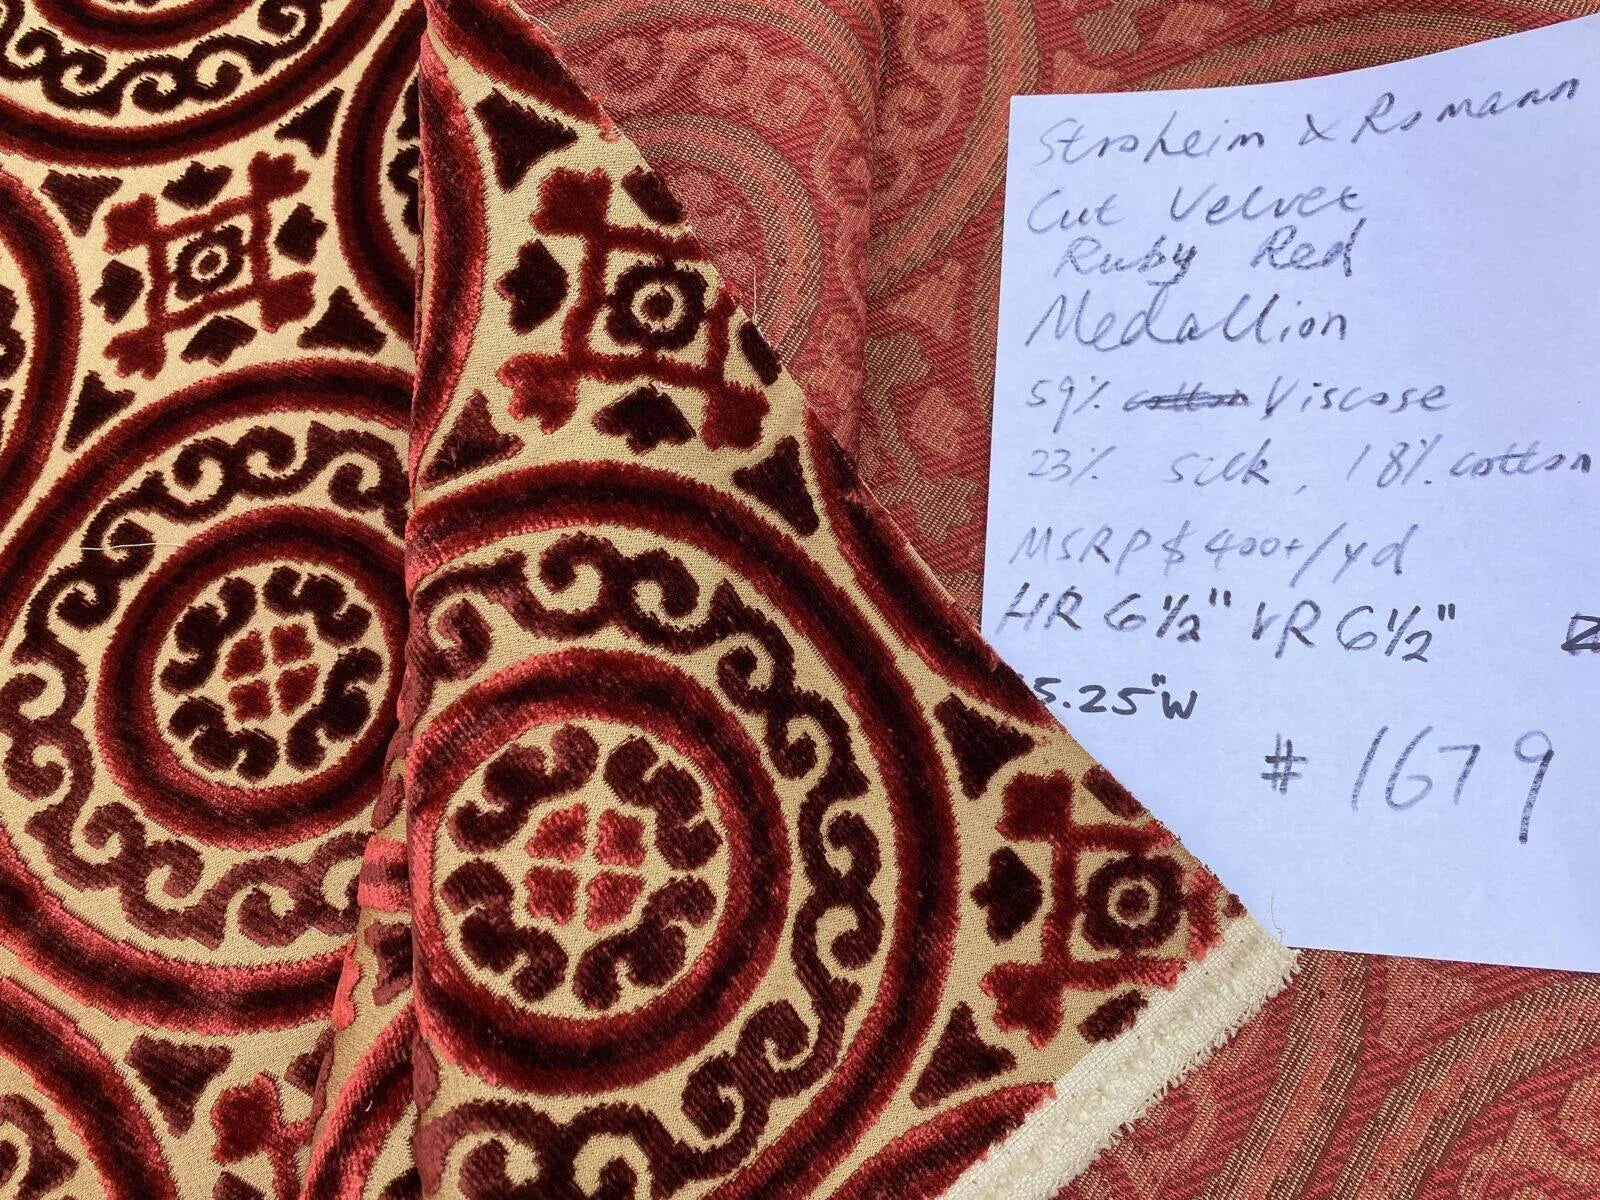 Stroheim & Romann
Cut Velvet
Ruby Red
Medallion
59% Viscose
23% silk, 18% cotton
MSRP $400+/yd
HR 6½" VR 6½"
5.25"W
#1679